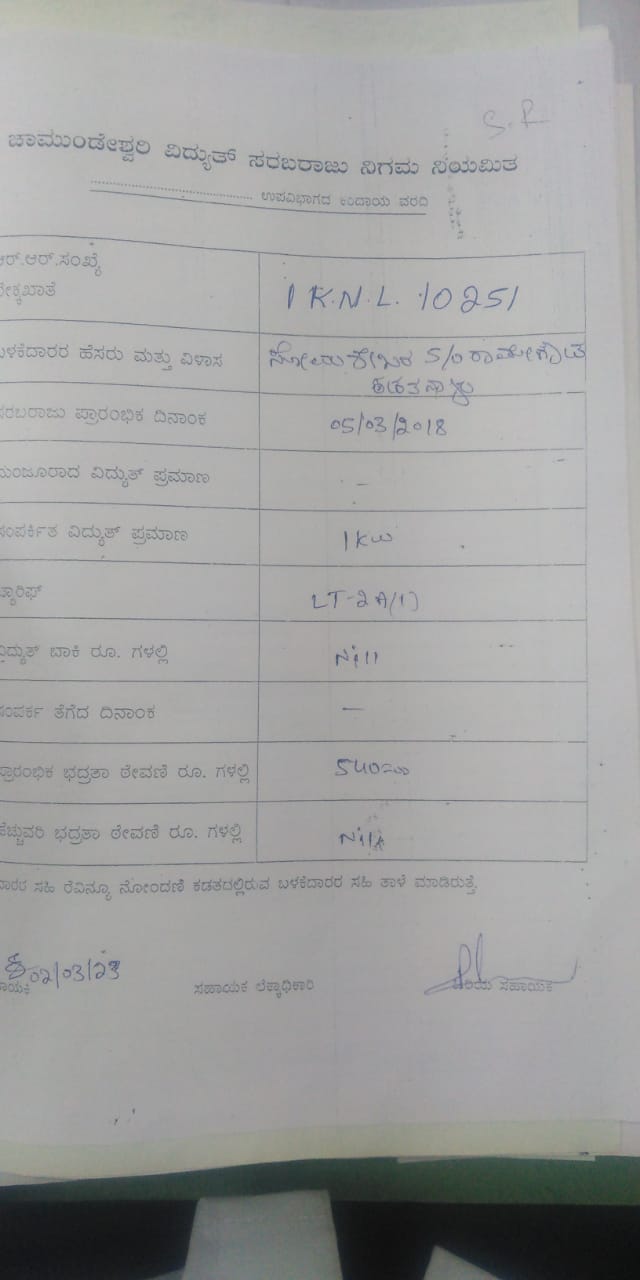 S.R
ಚಾಮುಂಡೇಶ್ವರಿ ವಿದ್ಯುತ್ ಸರಬರಾಜು ನಿಗಮ ನಿಯಮಿತ
........................................ ಉಪವಿಭಾಗದ ಕಂದಾಯ ವರದಿ
ಆರ್.ಆರ್.ಸಂಖ್ಯೆ
ಲೆಕ್ಕಖಾತೆ 1 K.N.L. 10251
ಬಳಕೆದಾರರ ಹೆಸರು ಮತ್ತು ವಿಳಾಸ ಸೋಮಶೇಖರ S/o ರಾಮೇಗೌಡ
ಸರಬರಾಜು ಪ್ರಾರಂಭಿಕ ದಿನಾಂಕ 05/03/2018
ಮಂಜೂರಾದ ವಿದ್ಯುತ್ ಪ್ರಮಾಣ -
ಸಂಪರ್ಕಿತ ವಿದ್ಯುತ್ ಪ್ರಮಾಣ 1KW
ಟ್ಯಾರಿಫ್ LT-2A(1)
ವಿದ್ಯುತ್ ಬಾಕಿ ರೂ. ಗಳಲ್ಲಿ Nill
ಸಂಪರ್ಕ ತೆಗೆದ ದಿನಾಂಕ -
ಪ್ರಾರಂಭಿಕ ಭದ್ರತಾ ಠೇವಣಿ ರೂ. ಗಳಲ್ಲಿ 540=00
ಹೆಚ್ಚುವರಿ ಭದ್ರತಾ ಠೇವಣಿ ರೂ. ಗಳಲ್ಲಿ Nill
ದಾರರ ಸಹಿ ರೆವಿನ್ಯೂ ನೋಂದಣಿ ಕಡತದಲ್ಲಿರುವ ಬಳಕೆದಾರರ ಸಹಿ ತಾಳೆ ಮಾಡಿರುತ್ತೆ.
02/03/23
ಾಯಕ ಸಹಾಯಕ ಲೆಕ್ಕಾಧಿಕಾರಿ ಹಿರಿಯ ಸಹಾಯಕ